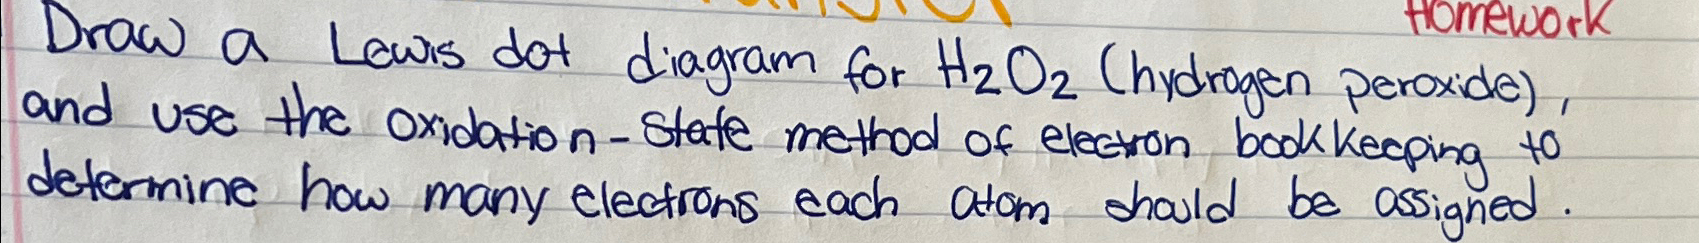 Homework
Draw a Lewis dot diagram for H2O2 (hydrogen peroxide),
and use the oxidation-state method of electron bookkeeping to
determine how many electrons each atom should be assigned.